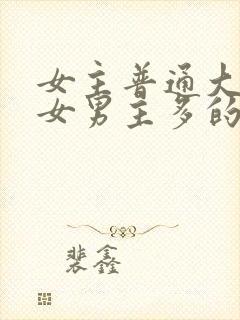 女主普通大
女男主多的
裴鑫